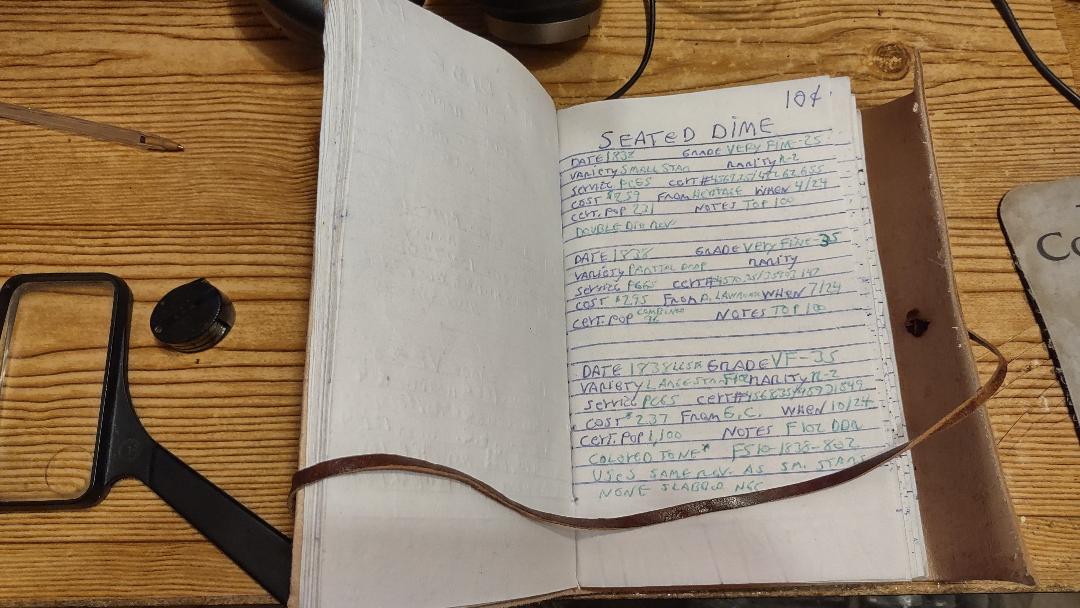 10¢
SEATED DIME
DATE 1838 GRADE VERY FINE-25
VARIETY SMALL STAR RARITY R-2
SERVICE PCGS CERT#
COST $259 FROM HERITAGE WHEN 4/24
CERT. POP 221 NOTES TOP 100
DOUBLE DIE REV
DATE 1838 GRADE VERY FINE-35
VARIETY PARTIAL DROP RARITY
SERVICE PCGS CERT#
COST $295 FROM WHEN 7/24
CERT. POP COMBINED NOTES TOP 100
DATE 1838 GRADE VF-35
VARIETY LARGE STAR RARITY R-2
SERVICE PCGS CERT#
COST $237 FROM G.C. WHEN 10/24
CERT. POP 1,100 NOTES F102 DDR
COLORED TONE* FS10-1838-802
USES SAME REV. AS SM. STARS
NONE SLABBED NGC
Co